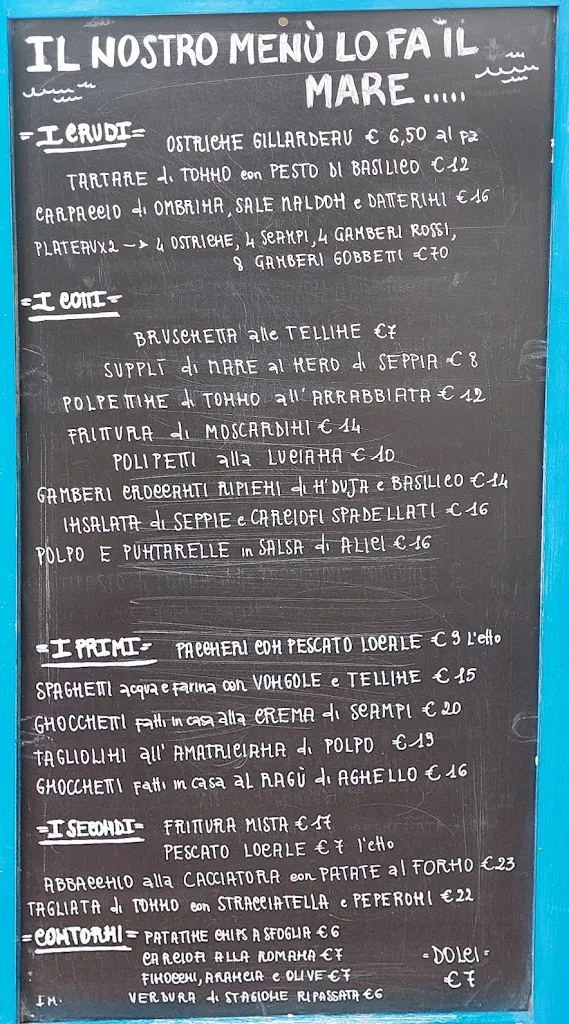 IL NOSTRO MENÙ LO FA IL
MARE.....
= I CRUDI = OSTRICHE GILLARDEAU € 6,50 al pz
TARTARE di TONNO con PESTO DI BASILICO € 12
CARPACCIO di OMBRINA, SALE MALDON e DATTERINI € 16
PLATEAUX2 -> 4 OSTRICHE, 4 SCAMPI, 4 GAMBERI ROSSI,
8 GAMBERI GOBBETTI €70
= I COTTI =
BRUSCHETTA alle TELLINE €7
SUPPLÌ di MARE al NERO di SEPPIA € 8
POLPETTINE di TONNO all'ARRABBIATA € 12
FRITTURA di MOSCARDINI € 14
POLIPETTI alla LUCIANA € 10
GAMBERI CROCCANTI RIPIENI di N'DUJA e BASILICO € 14
INSALATA di SEPPIE e CARCIOFI SPADELLATI € 16
POLPO E PUNTARELLE in SALSA di ALICI € 16
= I PRIMI = PACCHERI CON PESCATO LOCALE € 9 l'etto
SPAGHETTI acqua e farina con VONGOLE e TELLINE € 15
GNOCCHETTI fatti in casa alla CREMA di SCAMPI € 20
TAGLIOLINI all'AMATRICIANA di POLPO € 19
GNOCCHETTI fatti in casa AL RAGÙ di AGNELLO € 16
= I SECONDI = FRITTURA MISTA € 17
PESCATO LOCALE € 7 l'etto
ABBACCHIO alla CACCIATORA con PATATE al FORNO € 23
TAGLIATA di TONNO con STRACCIATELLA e PEPERONI € 22
= CONTORNI = PATATINE CHIPS A SFOGLIA € 6
CARCIOFI ALLA ROMANA €7
FINOCCHI, ARANCIA e OLIVE €7
VERDURA di STAGIONE RIPASSATA €6
- DOLCI -
€ 7